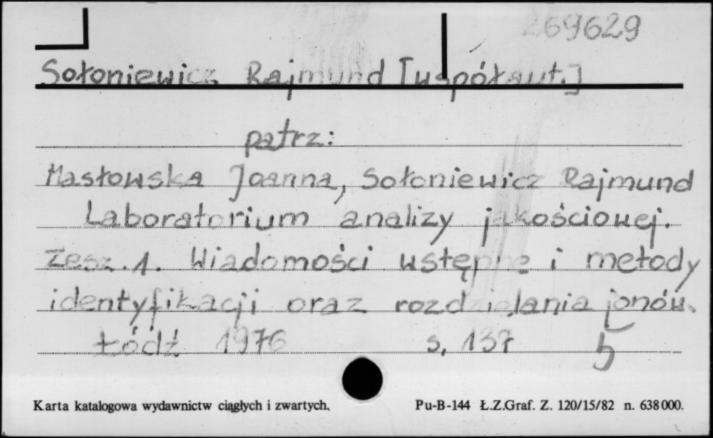 269629
Sołoniewicz Rajmund [współaut.]
patrz:
Masłowska Joanna, Sołoniewicz Rajmund
Laboratorium analizy jakościowej.
Zesz. 1. Wiadomości wstępne i metody
identyfikacji oraz rozdzielania jonów.
Łódź 1976 s. 137 5
Karta katalogowa wydawnictw ciągłych i zwartych. Pu-B-144 Ł.Z.Graf. Z. 120/15/82 n. 638000.